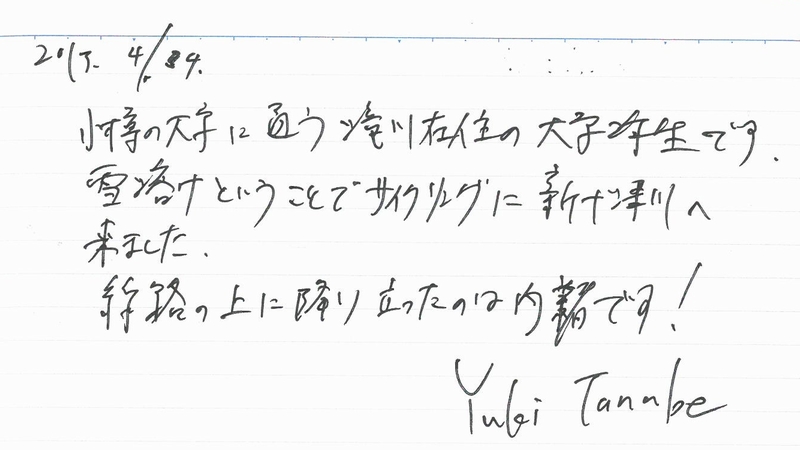 2015. 4/ 4.
小樽の大学に通う滝川在住の大学2年生です.
雪溶けということでサイクリングに新十津川へ
来ました.
線路の上に降り立ったのは内緒です!
Yuki Tanabe